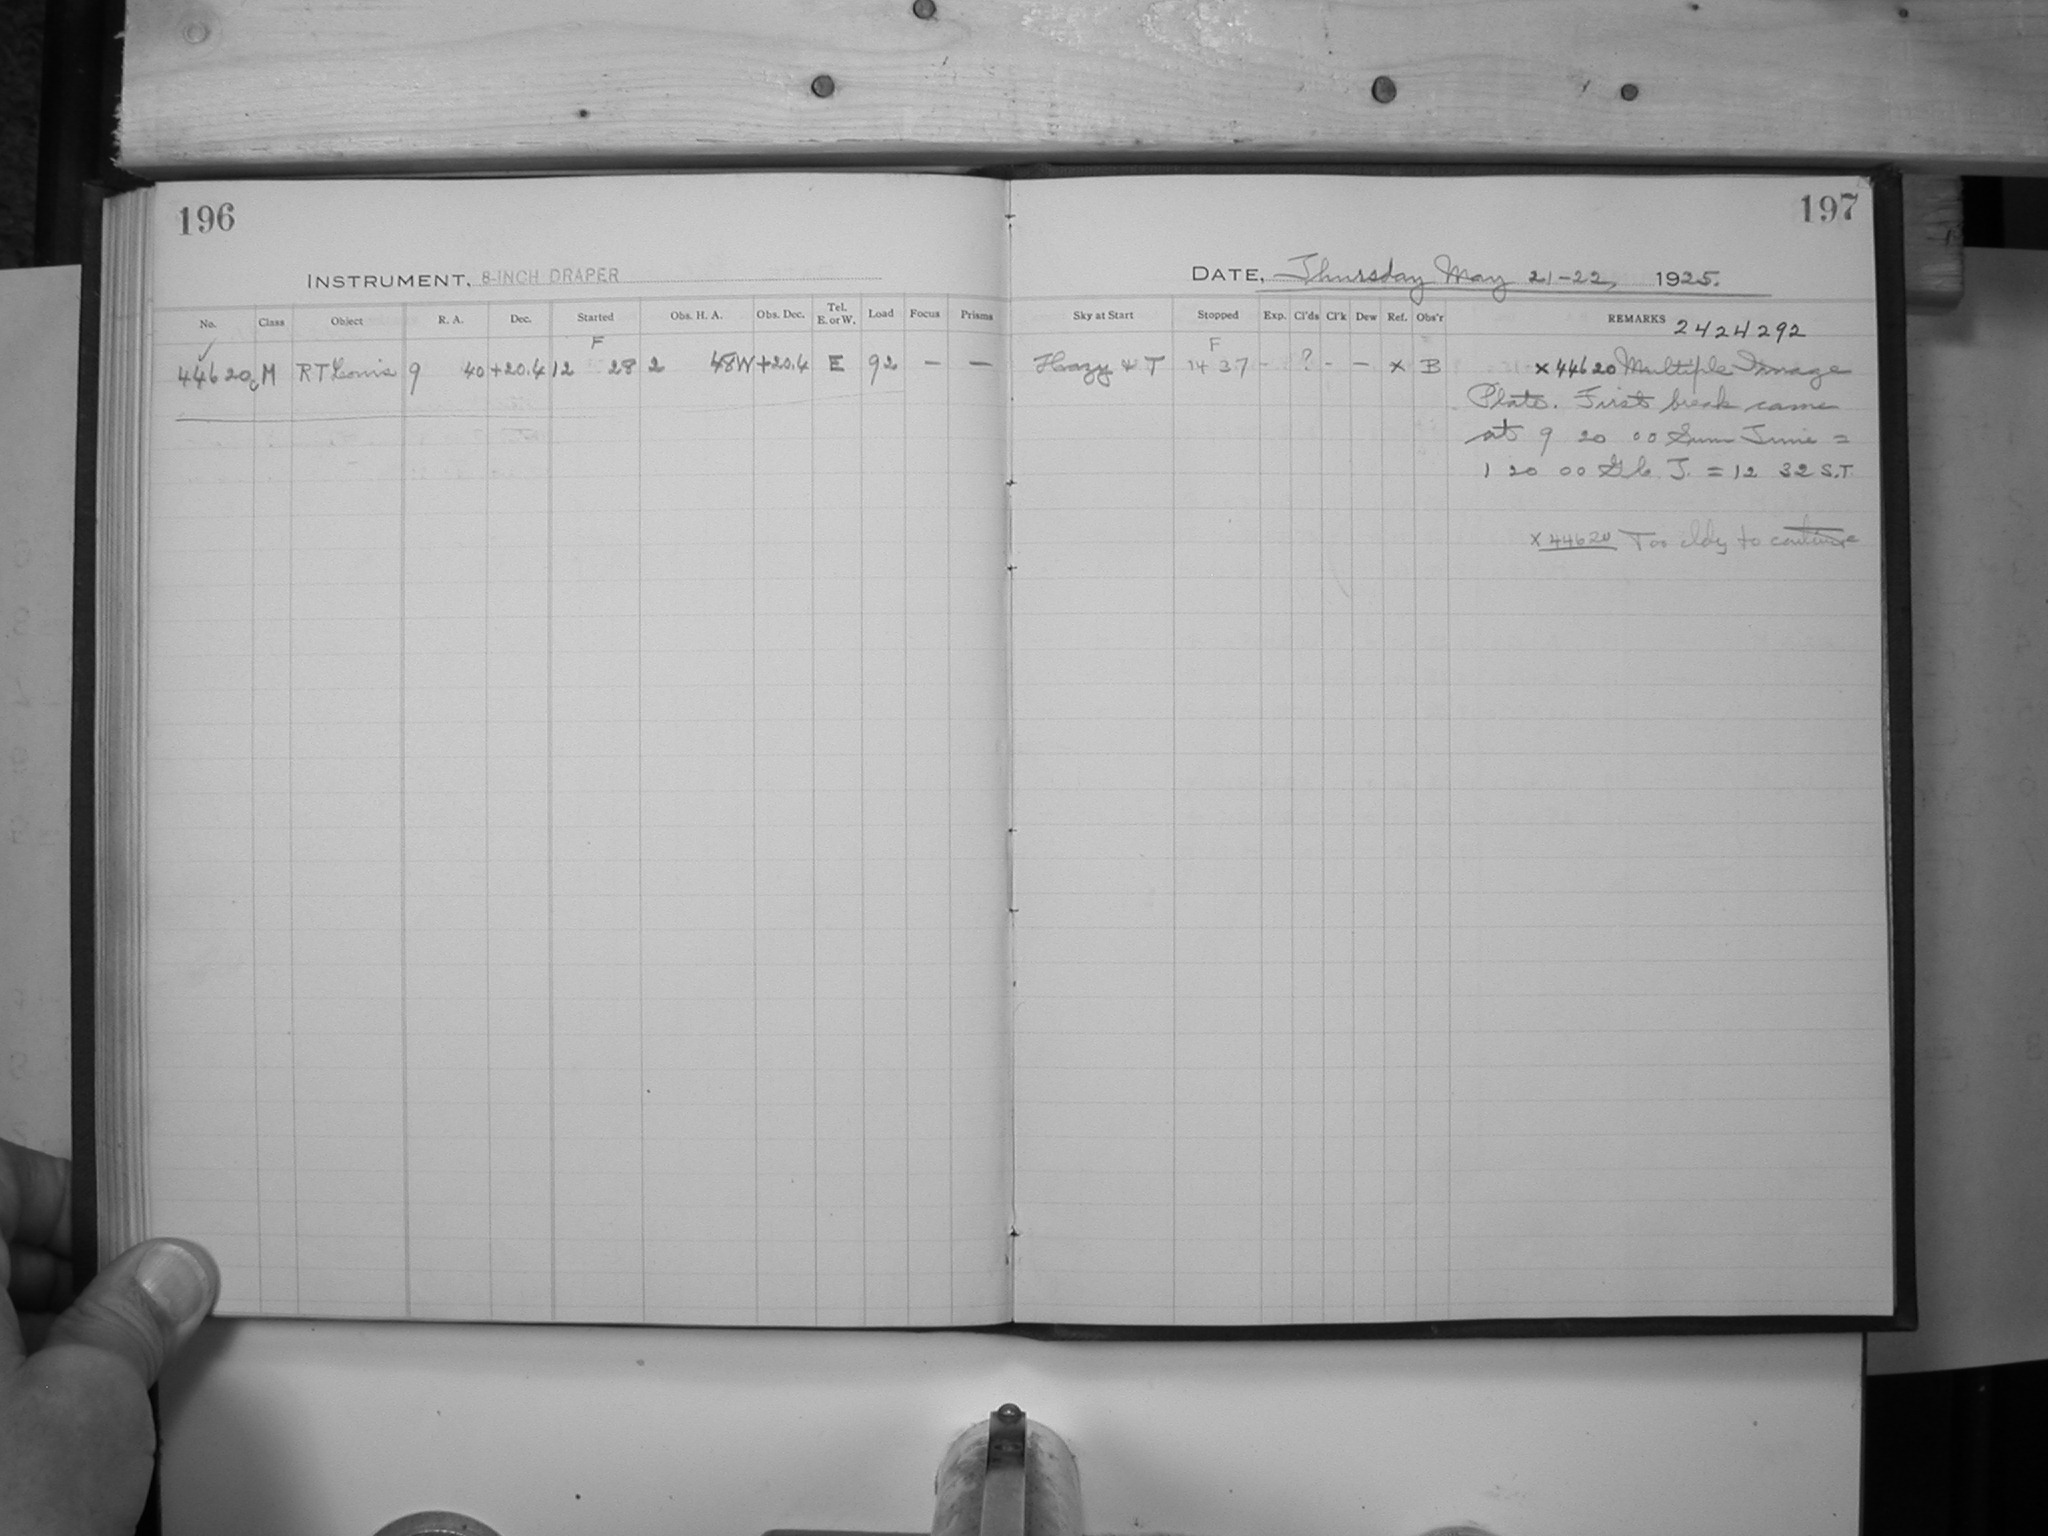 196
INSTRUMENT, 8-INCH DRAPER
No. Class Object R. A. Dec. Started Obs. H. A. Obs. Dec. Tel. E. or W. Load Focus Prisms
F
44620 M RT Leonis 9 40 +20.4 12 28 2 48W +20.4 E 92 — —
197
DATE, Thursday May 21-22, 1925.
Sky at Start Stopped Exp. Cl'ds Cl'k Dew Ref. Obs'r REMARKS 2424292
F
Hazy & T 14 37 - ? - — x B x 44620 Multiple Image
Plate. First break came
at 9 20 00 Sum Time =
1 20 00 G.C.T. = 12 32 S.T.
x 44620 Too cldy to continue